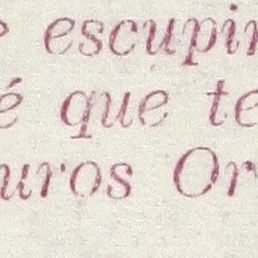 escupir
é que te
uros Or